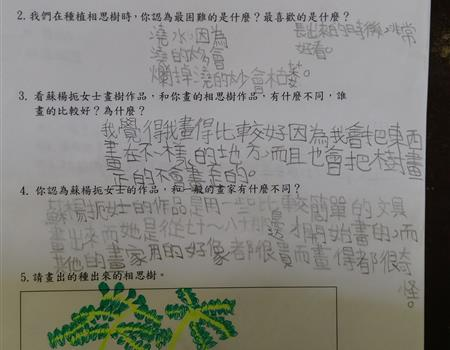 2. 我們在種植相思樹時，你認為最困難的是什麼？最喜歡的是什麼？
澆水因為
澆的多會
爛掉澆的少會枯萎。
長出來的時候，非常
好看。
3. 看蘇楊扼女士畫樹作品，和你畫的相思樹作品，有什麼不同，誰
畫的比較好？為什麼？
我覺得我畫得比較好因為我會把東西
畫在不一樣的地方而且也會把樹畫
正的不會畫歪的。
4. 你認為蘇楊扼女士的作品，和一般的畫家有什麼不同？
蘇楊扼女士的作品是用一些比較簡單的文具
畫出來而她是從七十～八十那邊才開始畫的，而
其他的畫家用的好像都很貴而畫得都很奇
怪。
5. 請畫出的種出來的相思樹。